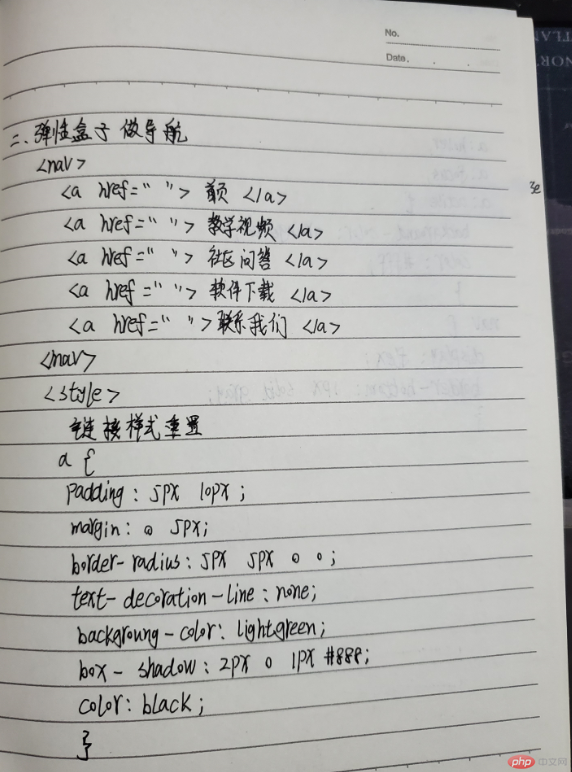 No.
Date.
二、弹性盒子做导航
<nav>
<a href=" "> 首页 </a>
<a href=" "> 教学视频 </a>
<a href=" "> 社区问答 </a>
<a href=" "> 软件下载 </a>
<a href=" "> 联系我们 </a>
<nav>
<style>
链接样式重置
a {
padding: 5px 10px;
margin: 0 5px;
border-radius: 5px 5px 0 0;
text-decoration-line: none;
backgroung-color: lightgreen;
box-shadow: 2px 0 1px #888;
color: black;
}
php 中文网